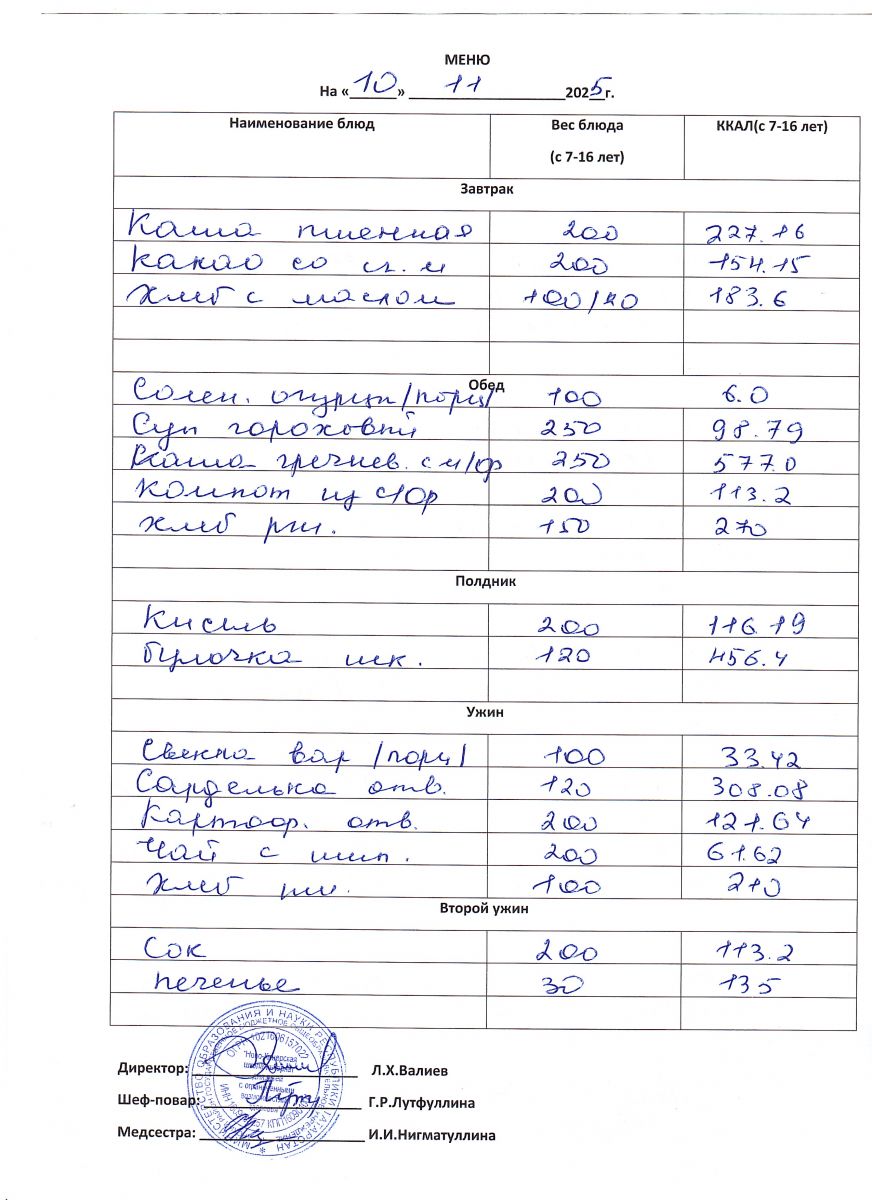 МЕНЮ
На «10» 11 2025г.
Наименование блюд Вес блюда (с 7-16 лет) ККАЛ(с 7-16 лет)
Завтрак
Каша пшенная 200 227.16
Какао со сг. м 200 154.15
Хлеб с маслом 100/20 183.6
Обед
Солен. огурцы/порц/ 100 6.0
Суп гороховый 250 98.79
Каша гречнев. с м/ф 250 577.0
Компот из с/фр 200 113.2
Хлеб рж. 150 270
Полдник
Кисель 200 116.19
Булочка шк. 120 456.4
Ужин
Свекла вар /порц/ 100 33.42
Сарделька отв. 120 308.08
Картоф. отв. 200 121.64
Чай с шип. 200 61.62
Хлеб рж. 100 210
Второй ужин
Сок 200 113.2
печенье 30 135
Директор: Л.Х.Валиев
Шеф-повар: Г.Р.Лутфуллина
Медсестра: И.И.Нигматуллина
МИНИСТЕРСТВО ОБРАЗОВАНИЯ И НАУКИ РЕСПУБЛИКИ ТАТАРСТАН
ОГРН 1021606157022
с ограниченными